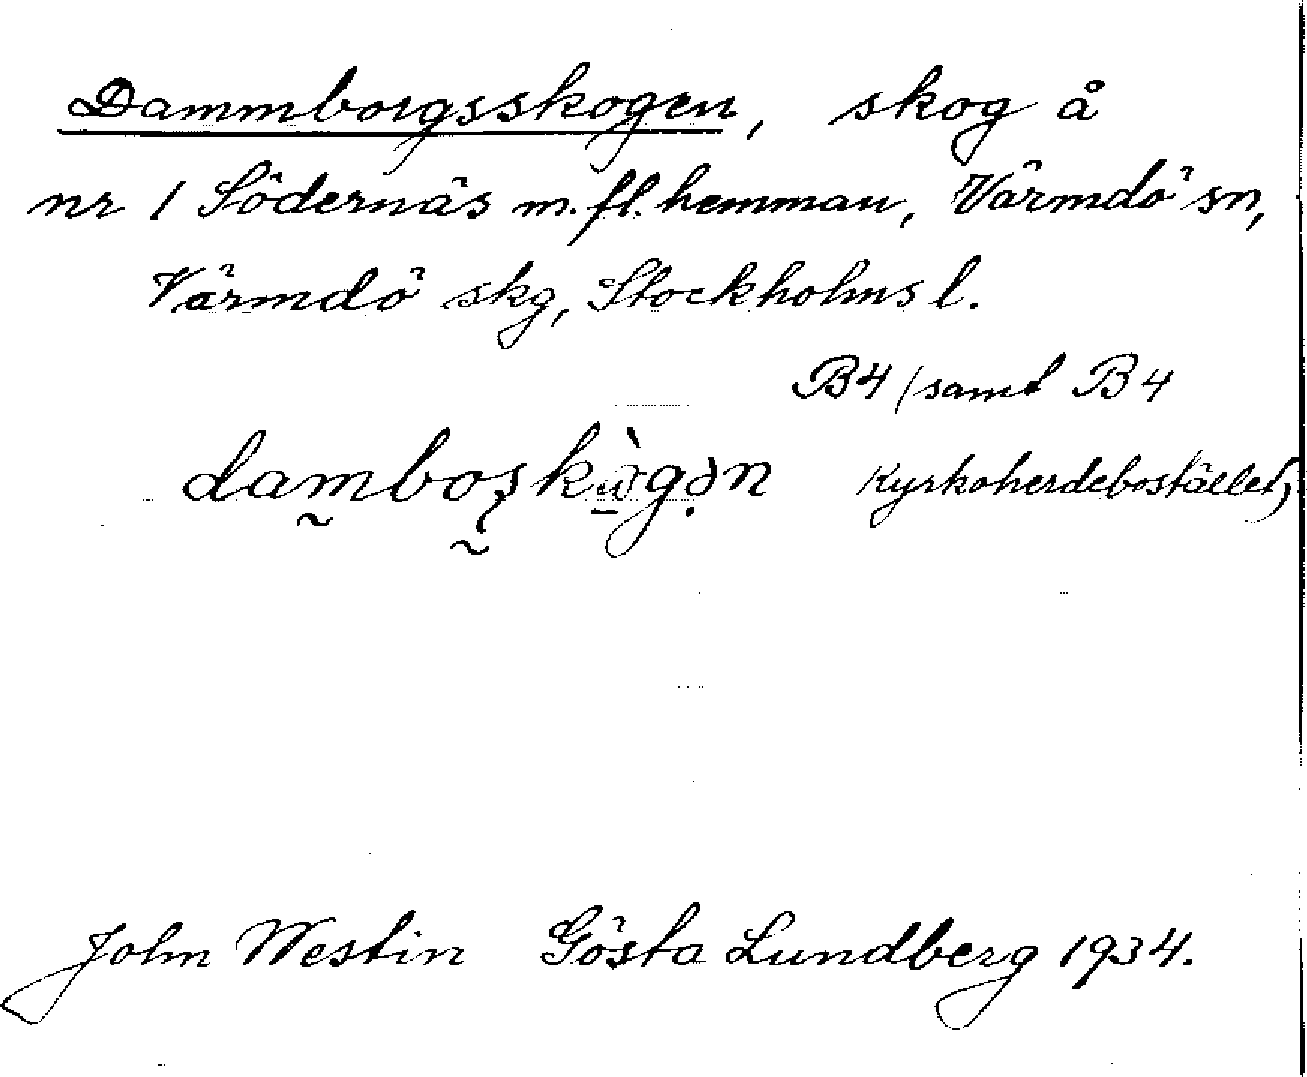 Dammborgsskogen, skog å
nr 1 Södernäs m.fl. hemman, Värmdö sn,
Värmdö skg, Stockholms l.
B4 (samt B4
Kyrkoherdebostället)
John Westin Gösta Lundberg 1934.